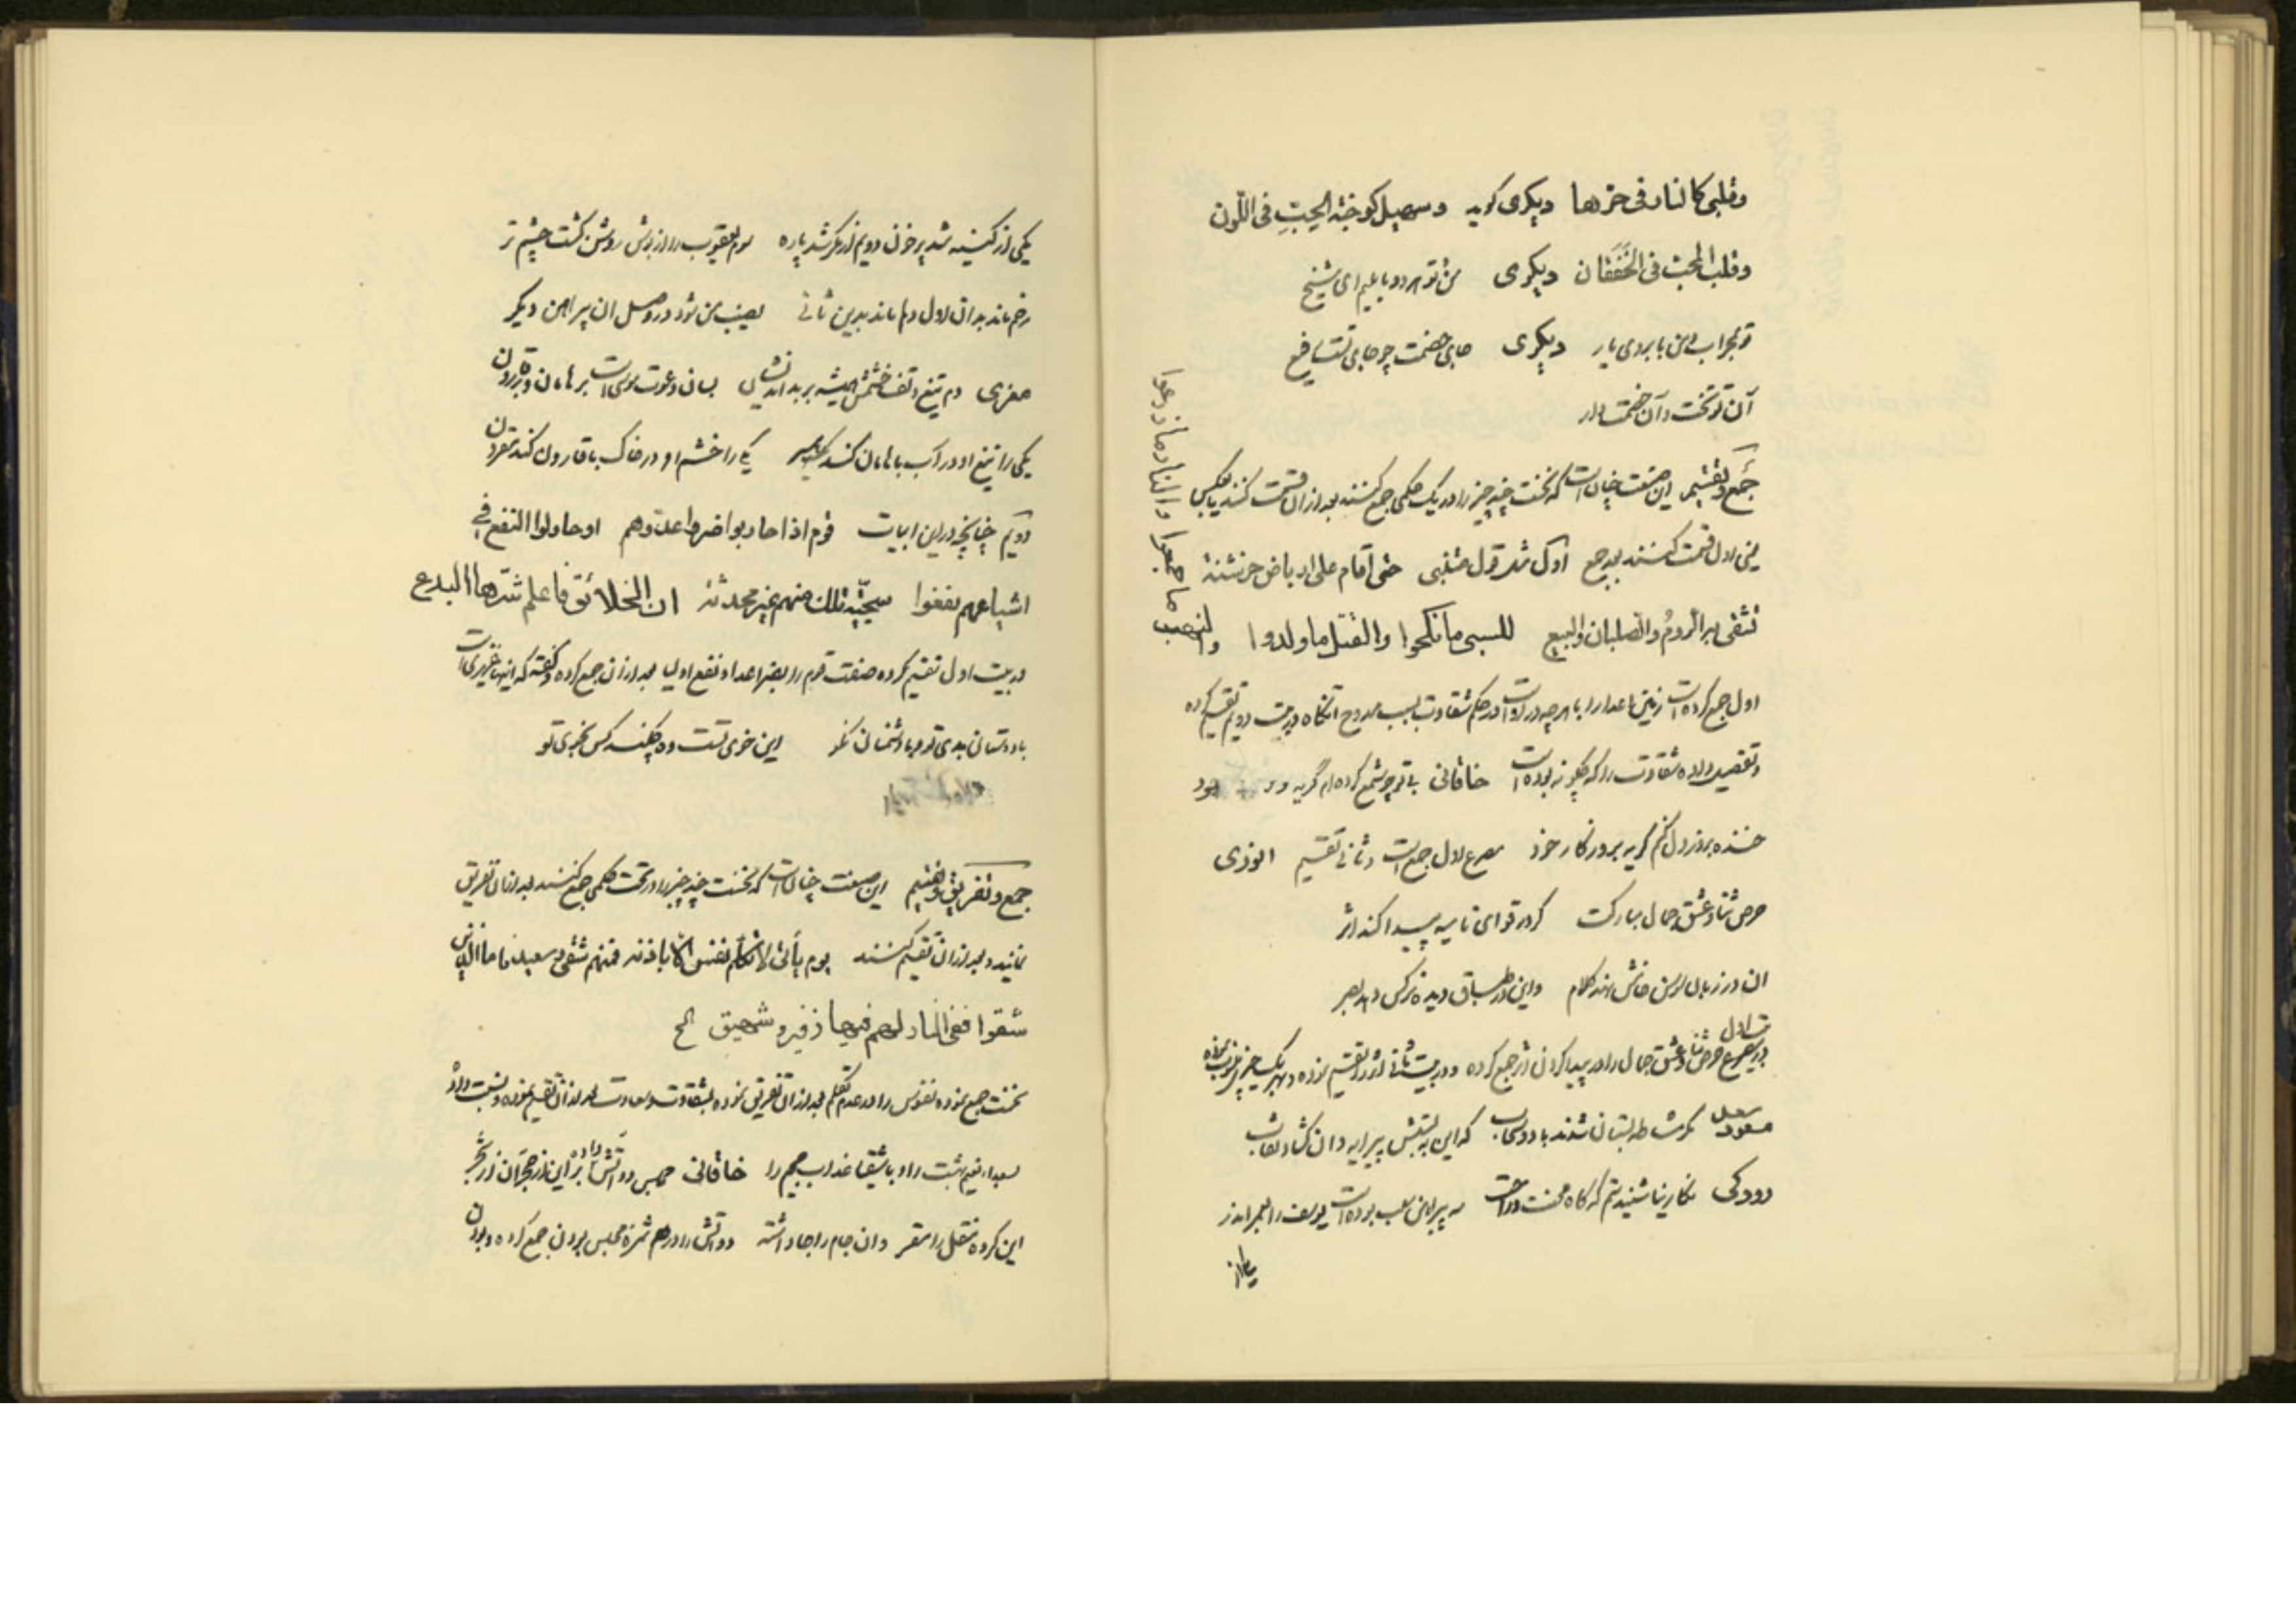 وقلبی کالنار فی حرها دیگری گوید وسهیل کوجنة الحِبّ فی اللّون
وقلب المحب فی الخَفَقان دیگری من و تو هر دو مایلیم ای شیخ
تو بمحراب و من بابروی یار دیگری جای خصمت چو جای تست رفیع
آن تو تخت و آن خصمت دار
جمع و تقسیم این صنعت چنان است که نخست چند چیز را در یک حکمی جمع کنند بعد از آن قسمت کنند یا بعکس
یعنی اول قسمت کنند بعد جمع اول مثل قول متنبی حتی اقام علی ارباض خرشنة
تشقی به الروم والصلبان والبیع للسبی ما نکحوا والقتل ما ولدوا والنهب ما جمعوا والنار ما زرعوا
اول جمع کرده است زمین اعدا را با هر چه در اوست در حکم شقاوت بسبب ممدوح آنگاه در بیت دویم تقسیم کرده
و تفصیل داده شقاوت را که چگونه بوده است خاقانی بی تو چو شمع کرده ام گریه و خود
خنده بروز دل کنم گریه بروزگار خود مصرع اول جمع است و ثانی تقسیم انوری
حرص ثنا و عشق جمال مبارکت کرد در قوای نامیه پیدا کند اثر
آن در زبان سوسن خامش نهد کلام واین در طباق دیده نرگس دهد بصر
در مصرع بیت اول حرص ثنا و عشق جمال را در پیدا کردن اثر جمع کرده و در بیت ثانی اثر را تقسیم نموده و بهر یک چیزی منسوب نموده
مسعود سعد مگر مشاطه بستان شدند باد و سحاب که این ببستش پیرایه و آن گشاد نقاب
رودکی نگارینا شنیدستم که گاه محنت و راحت سه پیراهن سلب بوده است یوسف را بعمر اندر
یکی از
یکی از کینه شد پر خون دویم از مکر شد پاره سوم یعقوب را از بوش روشن گشت چشم تر
رخم ماند بدان اول دلم ماند بدین ثانی نصیب من شود در وصل آن پیراهن دیگر
معزی دم تیغ و تف خشمش همیشه بر بداندیشان بسان دعوت موسی است بر هامان و بر قارون
یکی را تیغ او در آب با هامان کند یکی را خشم او در خاک با قارون کند مقرون
دویم چنانچه در این ابیات قوم اذا حاربوا ضروا عدوهم او حاولوا النفع فی
اشیاعهم نفعوا سجیّة تلک منهم غیر محدثة ان الخلائق فاعلم شرّها البدع
در بیت اول تقسیم کرده صفت قوم را بضر اعدا و نفع اولیا بعد از آن جمع کرده و گفته که اینها غریزی است
با دوستان بدی تو و با دشمنان نکو این خوی تست وه چکند کس بخوی تو
جمع و تفریق و تقسیم این صنعت چنان است که نخست چند چیز را در تحت حکمی جمع کنند بعد از آن تفریق
نمایند و بعد از آن تقسیم کنند یوم یأتی لا تکلم نفس الا باذنه فمنهم شقی و سعید فاما الذین
شقوا ففی النار لهم فیها زفیر و شهیق الخ
نخست جمع نموده نفوس را در عدم تکلم بعد از آن تفریق نموده بشقاوت و سعادت بعد از آن تقسیم نموده و نسبت داده
بسعدا نعیم بهشت را و باشقیا عذاب جحیم را خاقانی مجلس دو آتش داده بر این از حجر آن از شجر
این کرده منقل را مقر وان جام را جا داشته دو آتش را در هم ثمره مجلس بودن جمع کرده و بودن